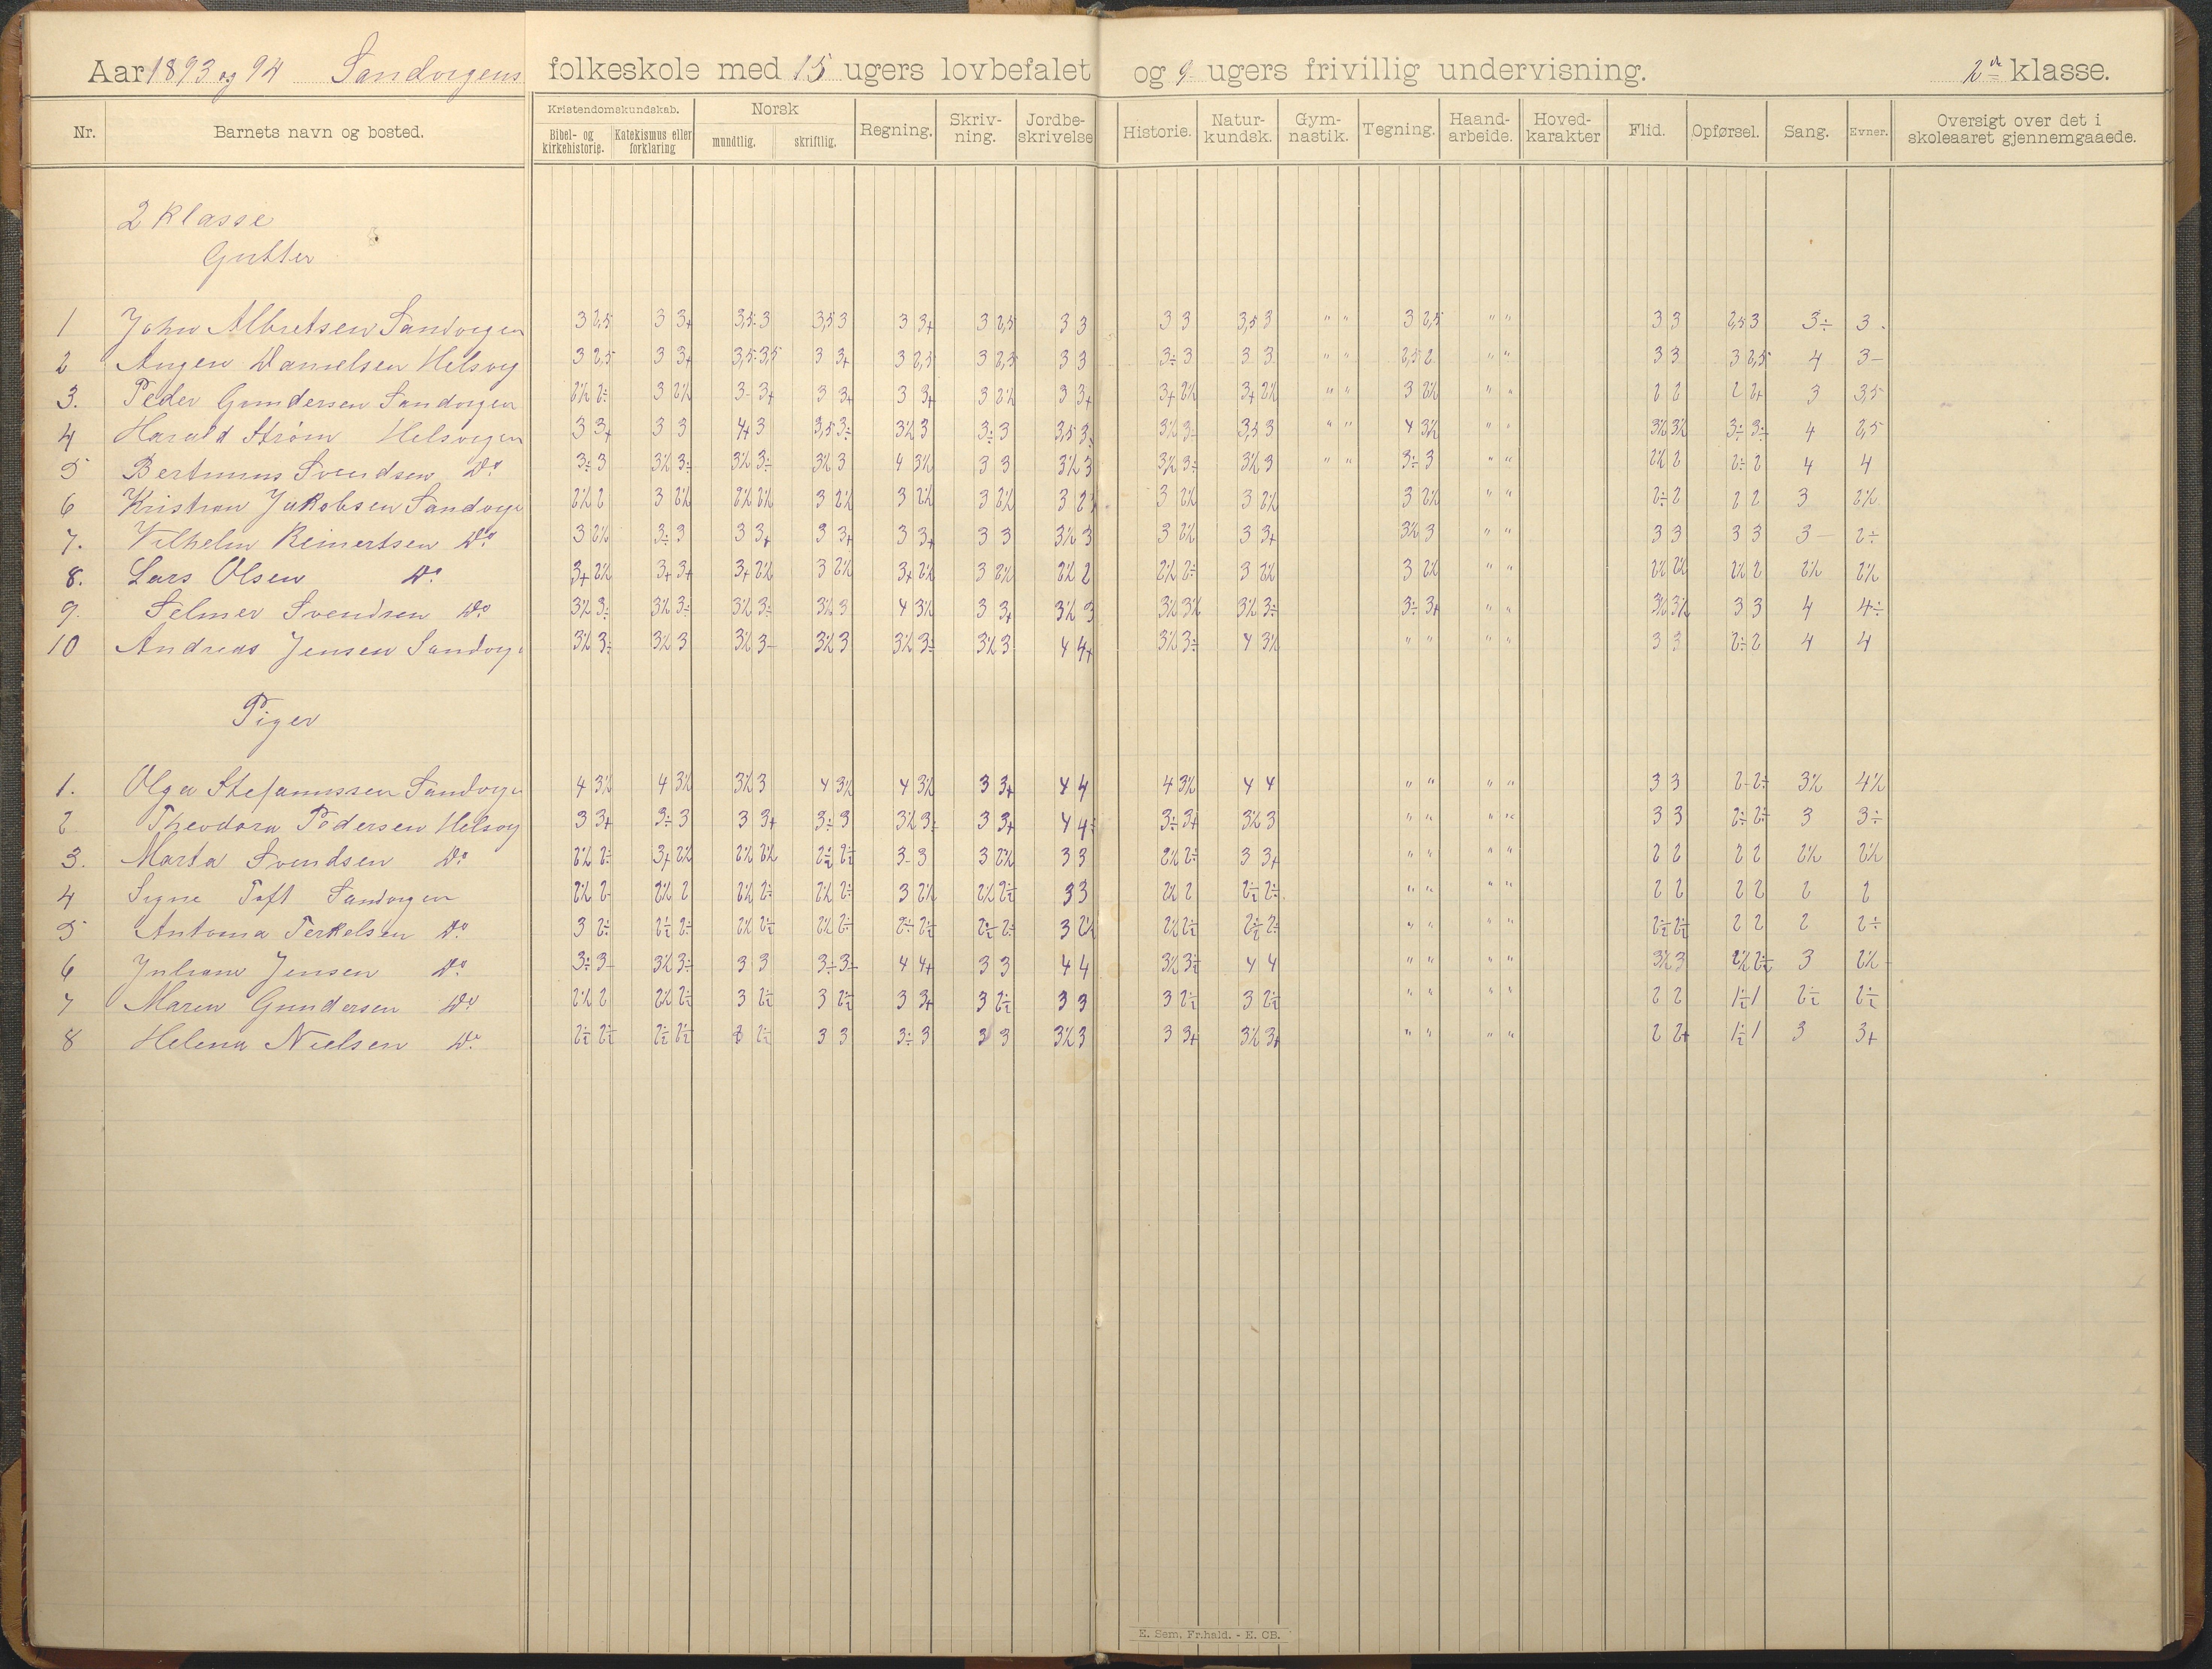 Aar 1893 og 94 Sandvigens folkeskole med 15 ugers lovbefalet og 9 ugers frivillig undervisning. 2de klasse.
Nr. Barnets navn og bosted. Kristendomskundskab. Bibel- og kirkehistorie. Katekismus eller forklaring Norsk mundtlig. skriftlig. Regning. Skriv-ning. Jordbe-skrivelse Historie. Natur-kundsk. Gym-nastik. Tegning. Haand-arbeide. Hoved-karakter Flid. Opførsel. Sang. Evner. Oversigt over det i skoleaaret gjennemgaaede.
2 klasse
Gutter
1 John Albretsen Sandvigen 3 2,5 3 3+ 3,5 3 3,5 3 3 3+ 3 2,5 3 3 3 3 3,5 3 " " 3 2,5 " " 3 3 2,5 3 3÷ 3
2 Danielsen Helsvig 3 2,5 3 3+ 3,5 3,5 3 3+ 3 2,5 3 2,5 3 3 3÷ 3 3 3 " " 2,5 2 " " 3 3 3 2,5 4 3-
3. Peder Gundersen Sandvigen 2½ 2÷ 3 2½ 3- 3+ 3 3+ 3 3+ 3 2½ 3 3+ 3+ 2½ 3+ 2½ " " 3 2½ " " 2 2 2 2+ 3 3,5
4 Harald Strøm Helsvigen 3 3+ 3 3 4+ 3 3,5 3÷ 3½ 3 3÷ 3 3,5 3÷ 3½ 3- 3,5 3 " " 4 3½ " " 3½ 3½ 3÷ 3÷ 4 2,5
5 Svendsen Do 3÷ 3 3½ 3÷ 3½ 3÷ 3½ 3 4 3½ 3 3 3½ 3 3½ 3÷ 3½ 3 " " 3÷ 3 " " 2½ 2 2÷ 2 4 4
6 Kristian Jakobsen Sandvige 2½ 2 3 2½ 2½ 2½ 3 2½ 3 2½ 3 2½ 3 2½ 3 2½ 3 2½ 3 2½ " " 2÷ 2 2 2 3 2½
7. Vilhelm Reinertsen Do 3 2½ 3÷ 3 3 3+ 3 3+ 3 3+ 3 3 3½ 3 3 2½ 3 3+ 3½ 3 " " 3 3 3 3 3- 2÷
8. Lars Olsen Do 3+ 2½ 3+ 3+ 3+ 2½ 3 2½ 3+ 2½ 3 2½ 2½ 2 2½ 2÷ 3 2½ 3 2½ " " 2½ 2½ 2½ 2 2½ 2½
9. Selmer Svendsen Do 3½ 3÷ 3½ 3÷ 3½ 3÷ 3½ 3 4 3½ 3 3+ 3½ 3 3½ 3½ 3½ 3÷ 3÷ 3+ " " 3½ 3½ 3 3 4 4÷
10 Andreas Jensen Sandvig 3½ 3÷ 3½ 3 3½ 3- 3½ 3 3½ 3÷ 3½ 3 4 4+ 3½ 3÷ 4 3½ " " " " 3 3 2÷ 2 4 4
Piger
1. Olga Stefanussen Sandvige 4 3½ 4 3½ 3½ 3 4 3½ 4 3½ 3 3+ 4 4 4 3½ 4 4 " " " " 3 3 2- 2÷ 3½ 4½
2 Theodora Pedersen Helsvig 3 3+ 3÷ 3 3 3+ 3÷ 3 3½ 3÷ 3 3+ 4 4÷ 3÷ 3+ 3½ 3 " " " " 3 3 2÷ 2÷ 3 3÷
3. Marta Svendsen Do 2½ 2÷ 3+ 2½ 2½ 2½ 2½ 2½ 3- 3 3 2½ 3 3 2½ 2÷ 3 3+ " " " " 2 2 2 2 2½ 2½
4 Signe Toft Sandvigen 2½ 2- 2½ 2 2½ 2÷ 2½ 2÷ 3 2½ 2½ 2½ 3 3 2½ 2 2½ 2÷ " " " " 2 2 2 2 2 2
5 Antonia Terkelsen Do 3 2÷ 2½ 2÷ 2½ 2½ 2½ 2÷ 2÷ 2½ 2½ 2÷ 3 2½ 2½ 2½ 2½ 2÷ " " " " 2½ 2½ 2 2 2 2÷
6 Juliane Jensen Do 3÷ 3- 3½ 3÷ 3 3 3÷ 3÷ 4 4+ 3 3 4 4 3½ 3½ 4 4 " " " " 3½ 3 2½ 2½ 3 2½
7 Maren Gundersen Do 2½ 2 2½ 2½ 3 2½ 3 2½ 3 3+ 3 2½ 3 3 3 2½ 3 2½ " " " " 2 2 1½ 1 2½ 2½
8 Helena Nielsen Do 2½ 2½ 2½ 2½ 2½ 3 3 3÷ 3 3 3 3½ 3 3 3+ 3½ 3+ " " " " 2 2+ 1½ 1 3 3+
E. Sem. Fr.hald. - E. CB.